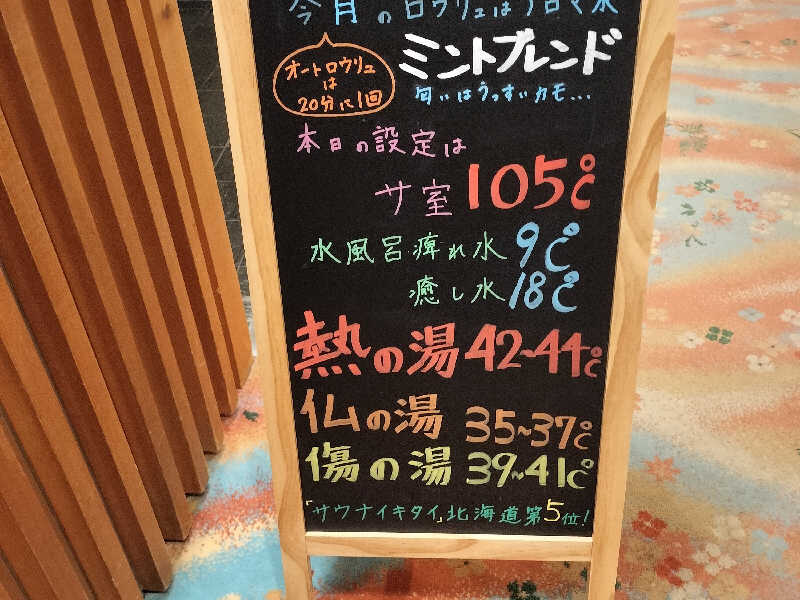 今月のロウリュは
ミントブレンド
匂いはうっすいカモ...
オートロウリュ
は
20分に1回
本日の設定は
サ室 105℃
水風呂痺れ水 9℃
癒し水 18℃
熱の湯 42~44℃
仏の湯 35~37℃
傷の湯 39~41℃
「サウナイキタイ」北海道第5位!